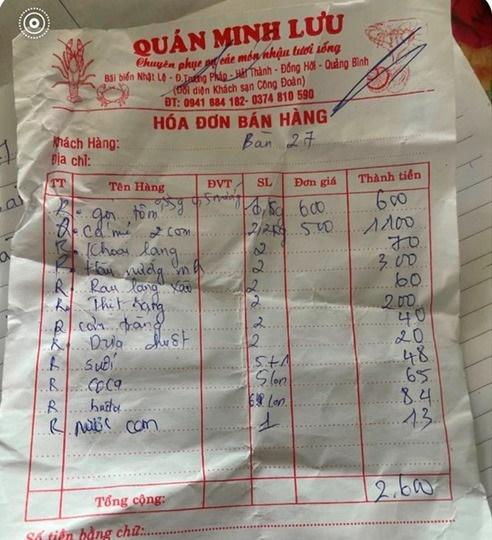 QUÁN MINH LƯU
Chuyên phục vụ các món nhậu tươi sống
Bãi biển Nhật Lệ - Đ.Trương Pháp - Hải Thành - Đồng Hới - Quảng Bình
(Đối diện Khách sạn Công Đoàn)
ĐT: 0941 884 182- 0374 810 590
HÓA ĐƠN BÁN HÀNG
Khách Hàng: Bàn 27
Địa chỉ:
TT Tên Hàng ĐVT SL Đơn giá Thành tiền
R gỏi tôm 600 600
R cá mú 2 con 500 1100
R Khoai lang 2 70
R Hàu nướng mh 2 300
R Rau lang xào 2 60
R Thịt rang 2 200
R cơm trắng 2 40
R Dưa chuột 2 20
R suối 5+1 48
R coca 5 lon 65
R lon 84
R nước cam 1 13
Tổng cộng: 2.600
Số tiền bằng chữ: